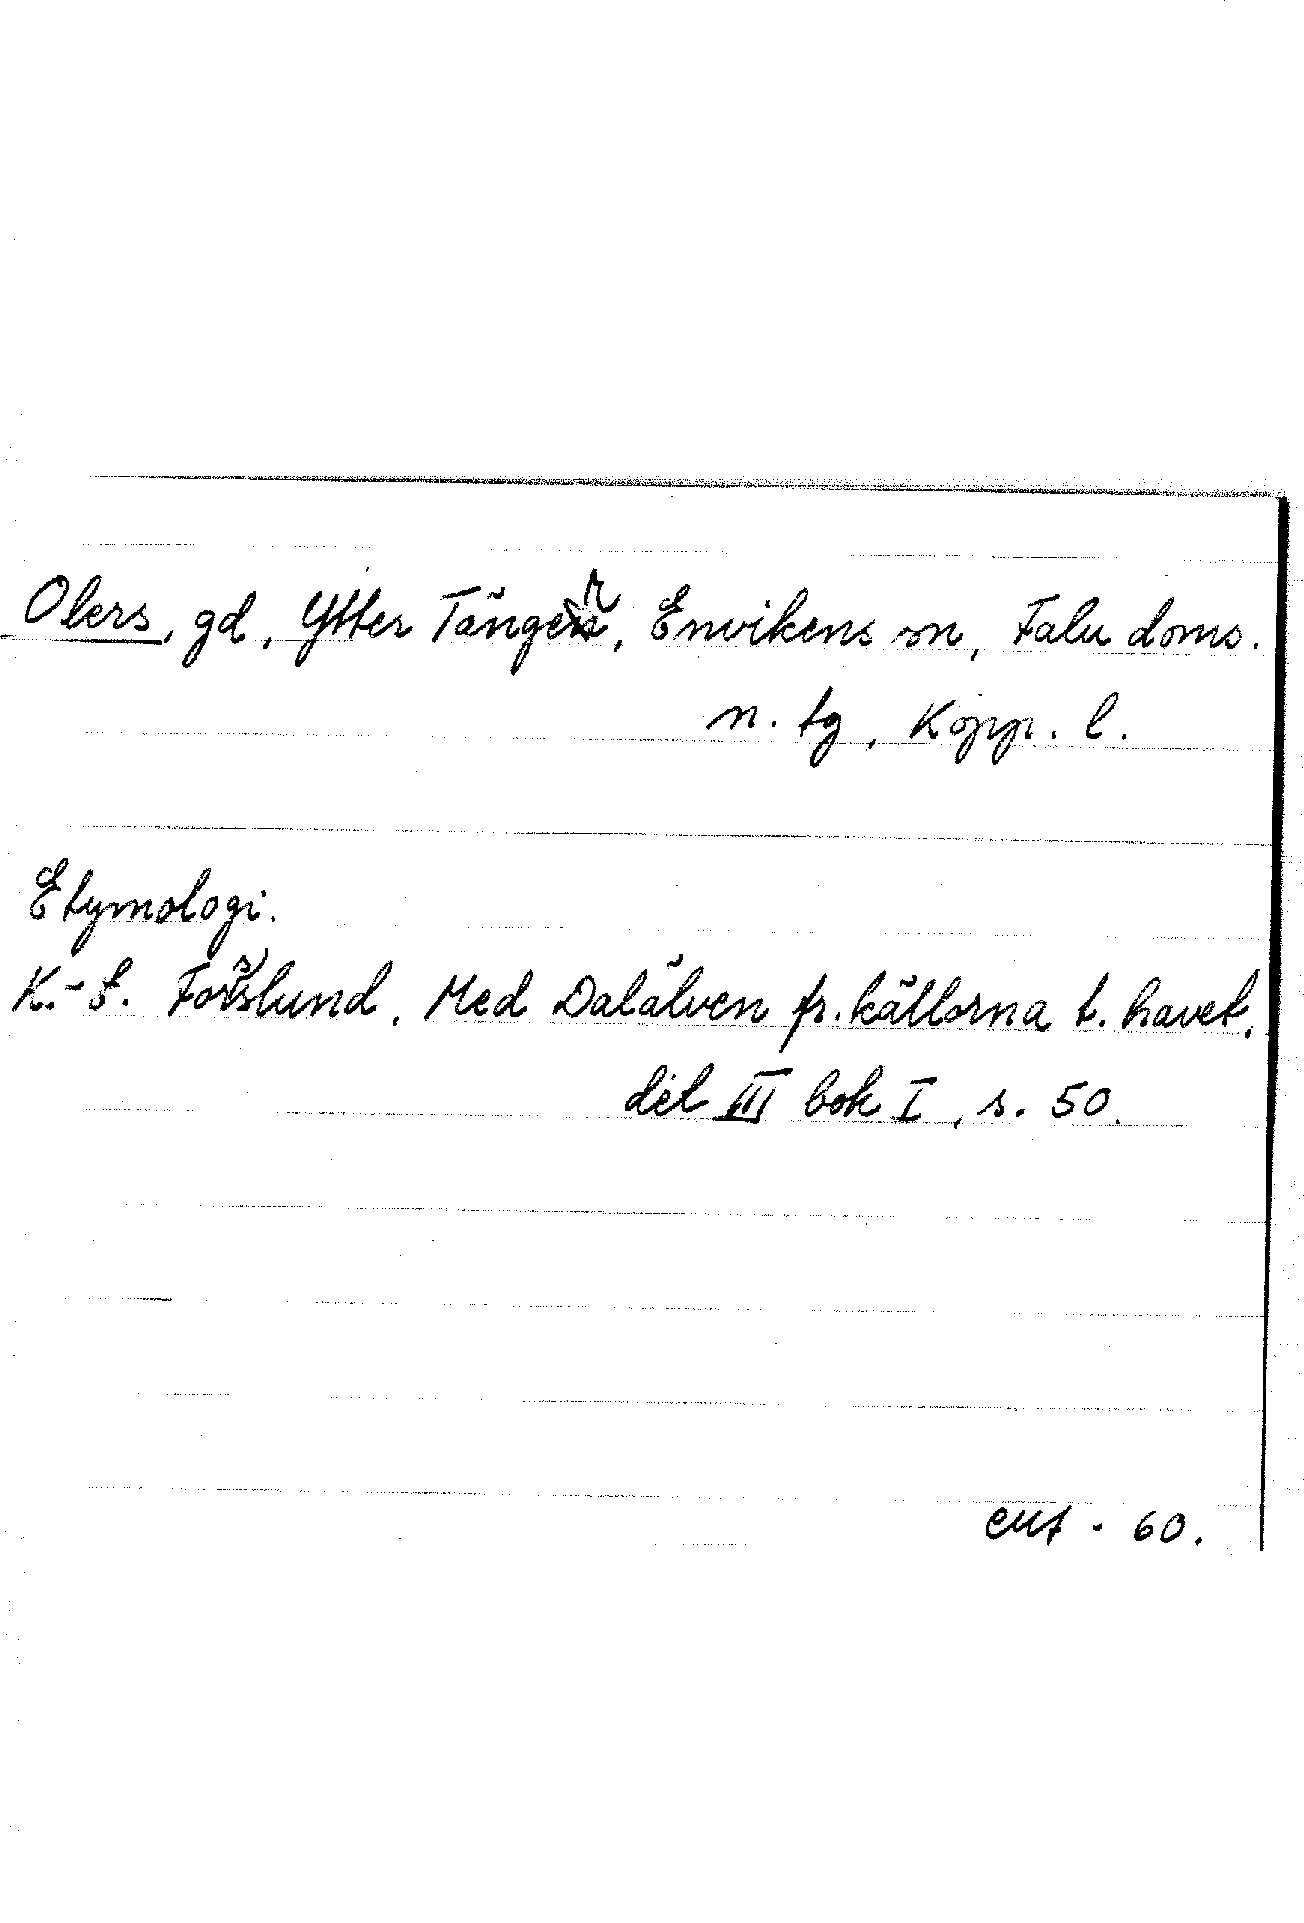 Olers, gd, Ytter Tänger, Envikens sn, Falu doms.
n. tg, Kopp. l.
Etymologi.
K.-E. Forsslund, Med Dalälven fr. källorna t. havet,
del III bok I, s. 50.
- 60.